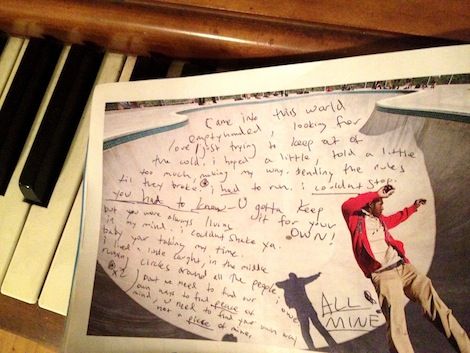 Came into this world
emptyhanded, looking for
love, just trying to keep out of
the cold. i hoped a little, told a little
too much, making my way. bending the rules
til they broke. i had to run. i couldn't stop.
you had to know - U gotta keep
it for your
OWN!
but you were always living
in my mind. i couldnt shake ya.
baby your taking my time.
i lived inside caught in the middle
running circles around all the people,
but we need to find our own
own ways to find peace of
mind, u need to find your own way
not a piece of mine,
ALL
MINE